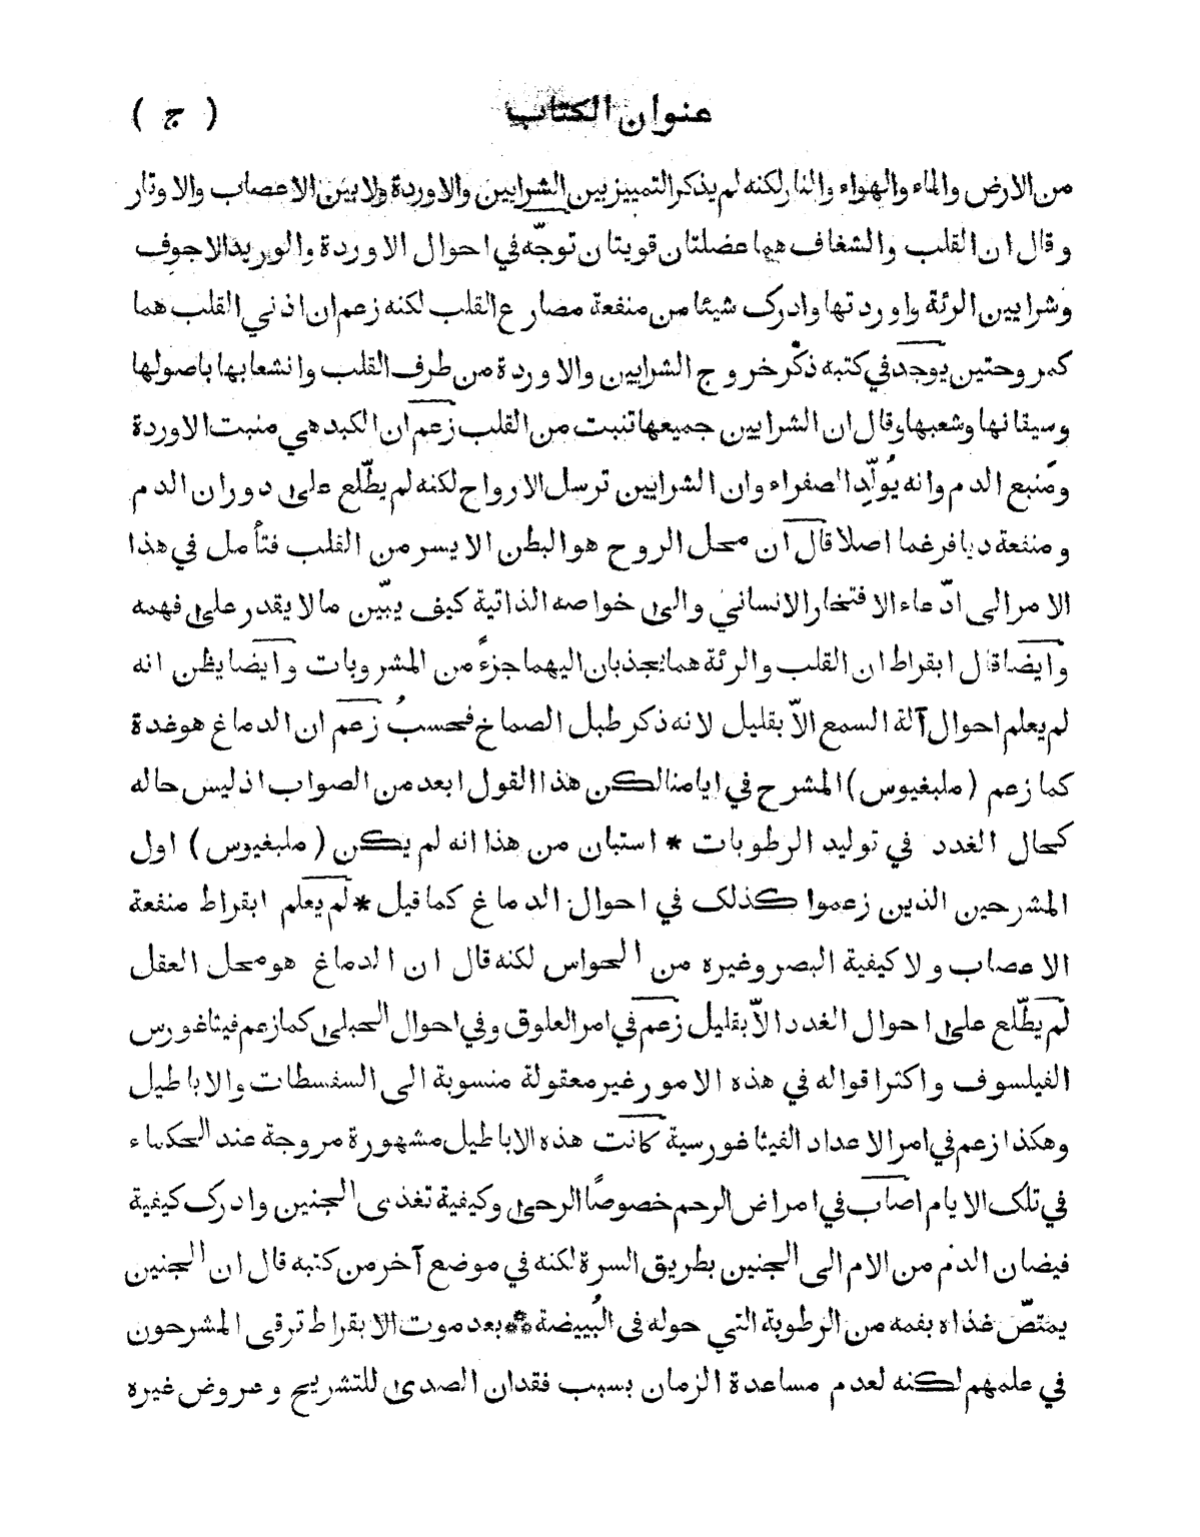 عنوان الكتاب ( ج )
من الارض والماء والهواء والنار لكنه لم يذكر التمييز بين الشرايين والاوردة ولا بين الاعصاب والاوتار
وقال ان القلب والشغاف هما عضلتان قويتان توجّه في احوال الاوردة والوريد الاجوف
وشرايين الرئة واوردتها وادرك شيئا من منفعة مصارع القلب لكنه زعم ان اذني القلب هما
كمروحتين يوجد في كتبه ذكر خروج الشرايين والاوردة من طرف القلب وانشعابها باصولها
وسيقانها وشعبها وقال ان الشرايين جميعها تنبت من القلب زعم ان الكبد هي منبت الاوردة
ومَنبع الدم وانه يُولّد الصفراء وان الشرايين ترسل الارواح لكنه لم يطّلع على دوران الدم
ومنفعة ديافرغما اصلا قال ان محل الروح هو البطن الايسر من القلب فتأمل في هذا
الامر الى ادّعاء الافتخار الانساني والى خواصه الذاتية كيف يبّين ما لا يقدر على فهمه
وايضا قال ابقراط ان القلب والرئة هما يجذبان اليهما جزءً من المشروبات وايضا يظن انه
لم يعلم احوال آلة السمع الاّ بقليل لانه ذكر طبل الصماخ فحسبُ زعم ان الدماغ هو غدة
كما زعم (ملبغيوس) المشرح في ايامنا لكن هذا القول ابعد من الصواب اذ ليس حاله
كحال الغدد في توليد الرطوبات * استبان من هذا انه لم يكن (ملبغيوس) اول
المشرحين الذين زعموا كذلك في احوال الدماغ كما قيل * لم يعلم ابقراط منفعة
الاعصاب ولا كيفية البصر وغيره من الحواس لكنه قال ان الدماغ هو محل العقل
لم يطّلع على احوال الغدد الاّ بقليل زعم في امر العلوق وفي احوال الحبلى كما زعم فيثاغورس
الفيلسوف واكثر اقواله في هذه الامور غير معقولة منسوبة الى السفسطات والاباطيل
وهكذا زعم في امر الاعداد الفيثاغورسية كانت هذه الاباطيل مشهورة مروجة عند الحكماء
في تلك الايام اصاب في امراض الرحم خصوصًا الرحى وكيفية تغذى الجنين وادرك كيفية
فيضان الدم من الام الى الجنين بطريق السرة لكنه في موضع آخر من كتبه قال ان الجنين
يمتصّ غذاه بفمه من الرطوبة التي حوله فى البُييضة * بعد موت الابقراط ترقى المشرحون
في علمهم لكنه لعدم مساعدة الزمان بسبب فقدان الصدى للتشريح وعروض غيره